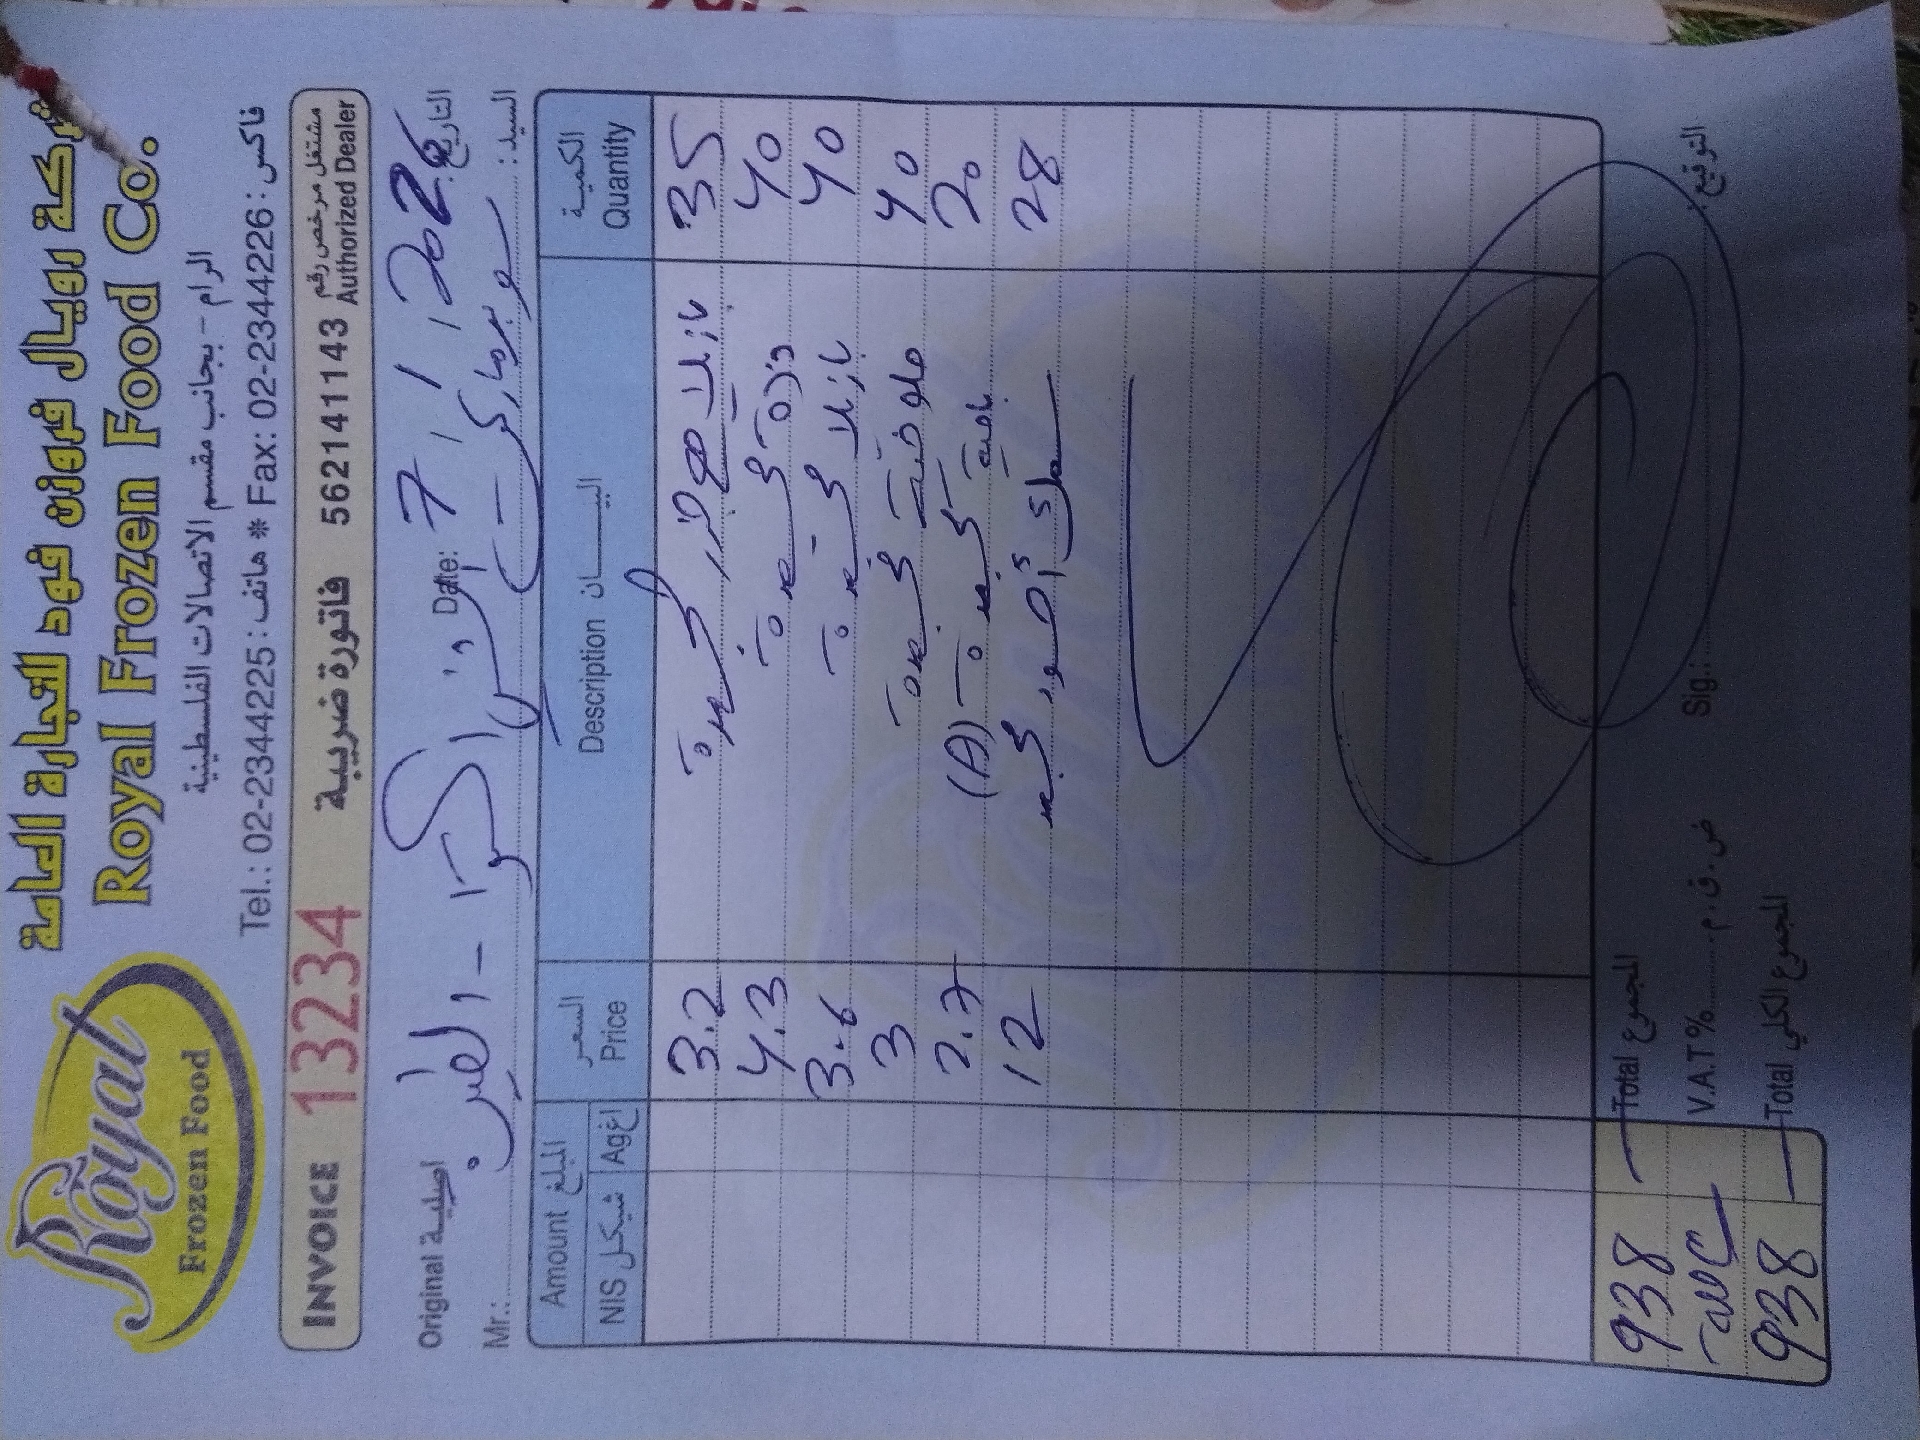 شركة رويال فروزن فود للتجارة العامة
Royal Frozen Food Co.
Royal
Frozen Food
الرام - بجانب مقسم الاتصالات الفلسطينية
Tel.: 02-2344225 : هاتف * Fax: 02-2344226 : فاكس
INVOICE 13234 فاتورة ضريبة 562141143 مشتغل مرخص رقم Authorized Dealer
Original اصلية Date: 7 / 1 / 2026 التاريخ
Mr.: سوبرماركت السيد:
Amount المبلغ السعر Price البيـــــان Description الكمية Quantity
NIS شيكل Agو اغ
3.2 بازيلا كبيرة 35
4.3 ذرة كبيرة 40
3.6 بازيلا كبيرة 40
3 ملوخية كبيرة 40
2.7 بامية كبيرة (A) 20
12 28
938 Total المجموع
V.A.T% ض.ق.م.
938 Total المجموع الكلي
Sig.: التوقيع: